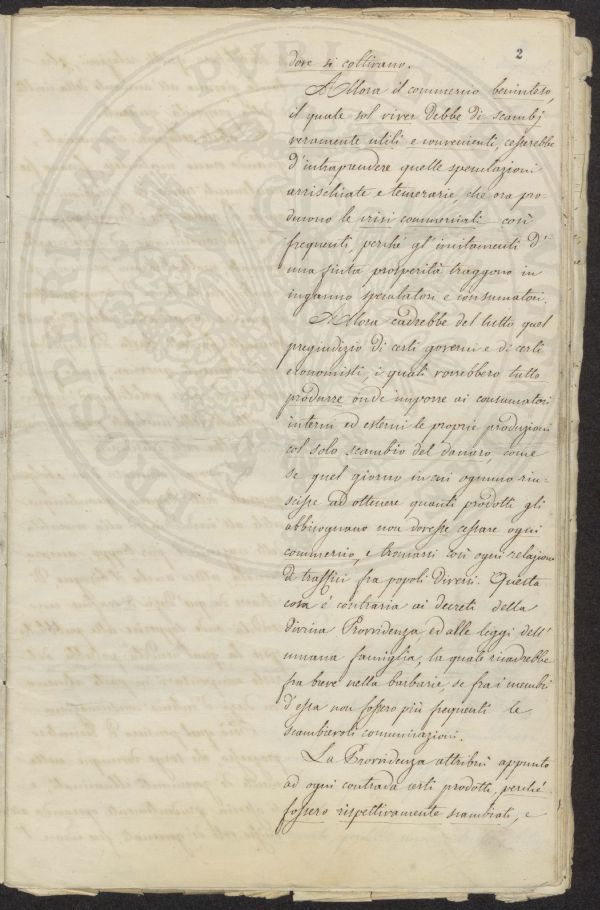 2
dove si coltivano.
Allora il commercio beninteso,
il quale sol viver debbe di scambj
veramente utili e convenienti, cesserebbe
d'intraprendere quelle speculazioni
arrischiate e temerarie, che ora pro-
ducono le crisi commerciali così
frequenti, perché gl'incitamenti d'
una finta prosperità traggono in
inganno speculatori e consumatori.
Allora cadrebbe del tutto quel
pregiudizio di certi governi e di certi
economisti, i quali vorrebbero tutto
produrre onde imporre ai consumatori
interni ed esterni le proprie produzioni
col solo scambio del danaro, come
se quel giorno in cui ognuno riu-
scisse ad ottenere quanti prodotti gli
abbisognano non dovesse cessare ogni
commercio, e troncarsi così ogni relazione
di traffici fra popoli diversi. Questa
cosa é contraria ai decreti della
divina Provvidenza ed alle leggi dell'
umana famiglia, la quale ricadrebbe
fra breve nella barbarie, se fra i membri
d'essa non fossero più frequenti le
scambievoli comunicazioni.
La Provvidenza attribuì appunto
ad ogni contrada certi prodotti, perché
fossero rispettivamente scambiati, e